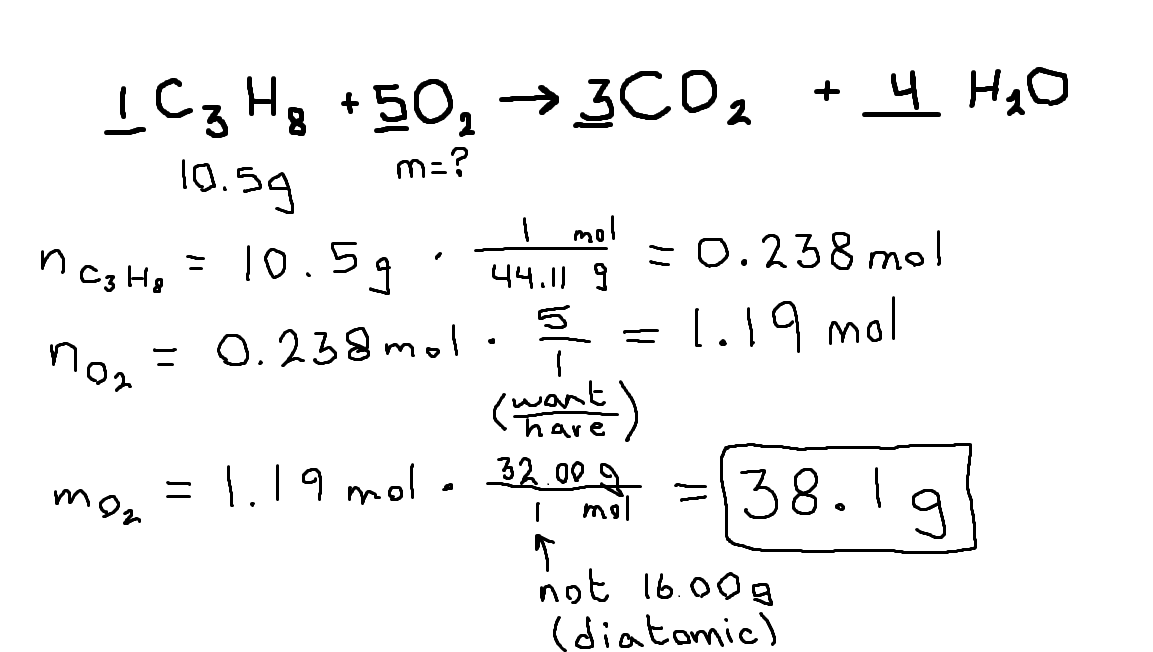 1 C₃H₈ + 5O₂ → 3CO₂ + 4 H₂O
10.5g m=?
n C₃H₈ = 10.5g · 1 mol / 44.11 g = 0.238 mol
n O₂ = 0.238 mol · 5 / 1 = 1.19 mol
(want / have)
m O₂ = 1.19 mol · 32.00 g / 1 mol = 38.1 g
↑
not 16.00g
(diatomic)